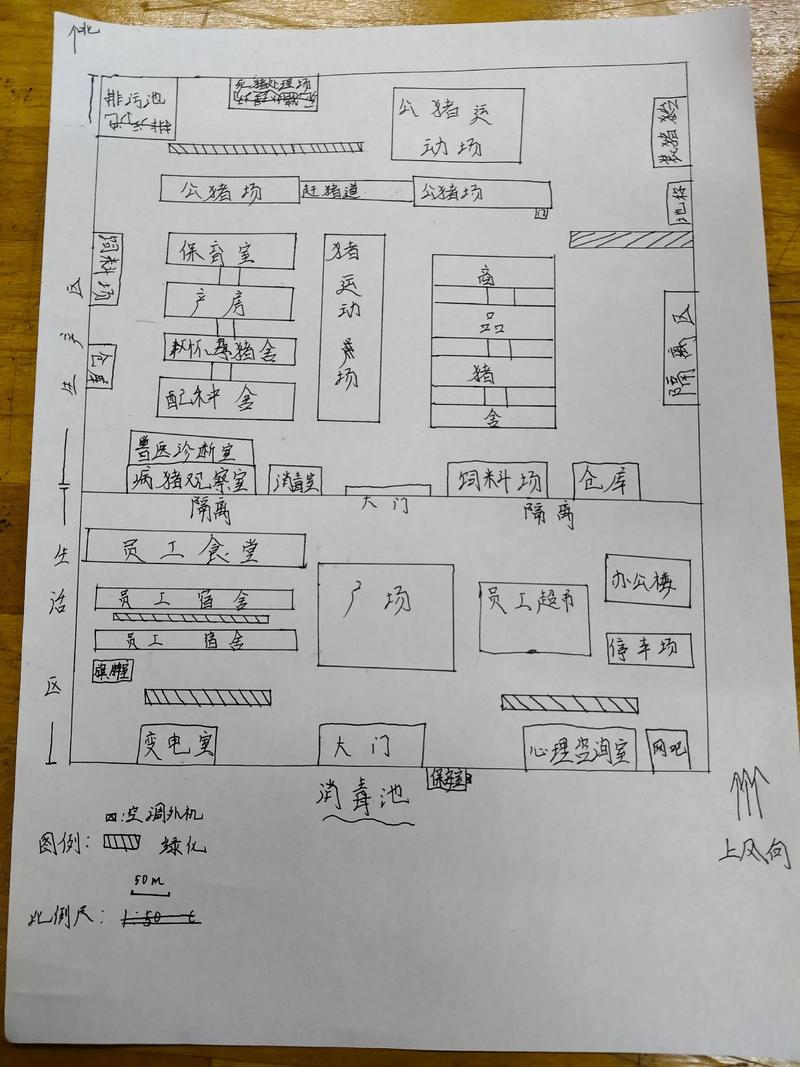 北
排污池
死猪处理场
公猪运
动场
装猪台
公猪场
赶猪道
公猪场
地秤
饲料场
保育室
产房
猪舍
配种舍
猪运动场
商品猪舍
隔离区
仓库
生产区
兽医诊断室
病猪观察室
消毒室
大门
饲料场
仓库
隔离
隔离
员工食堂
员工宿舍
员工宿舍
广场
员工超市
办公楼
停车场
生活区
变电室
大门
心理咨询室
网吧
保安室
消毒池
上风向
:空调外机
图例:
绿化
50m
比例尺: